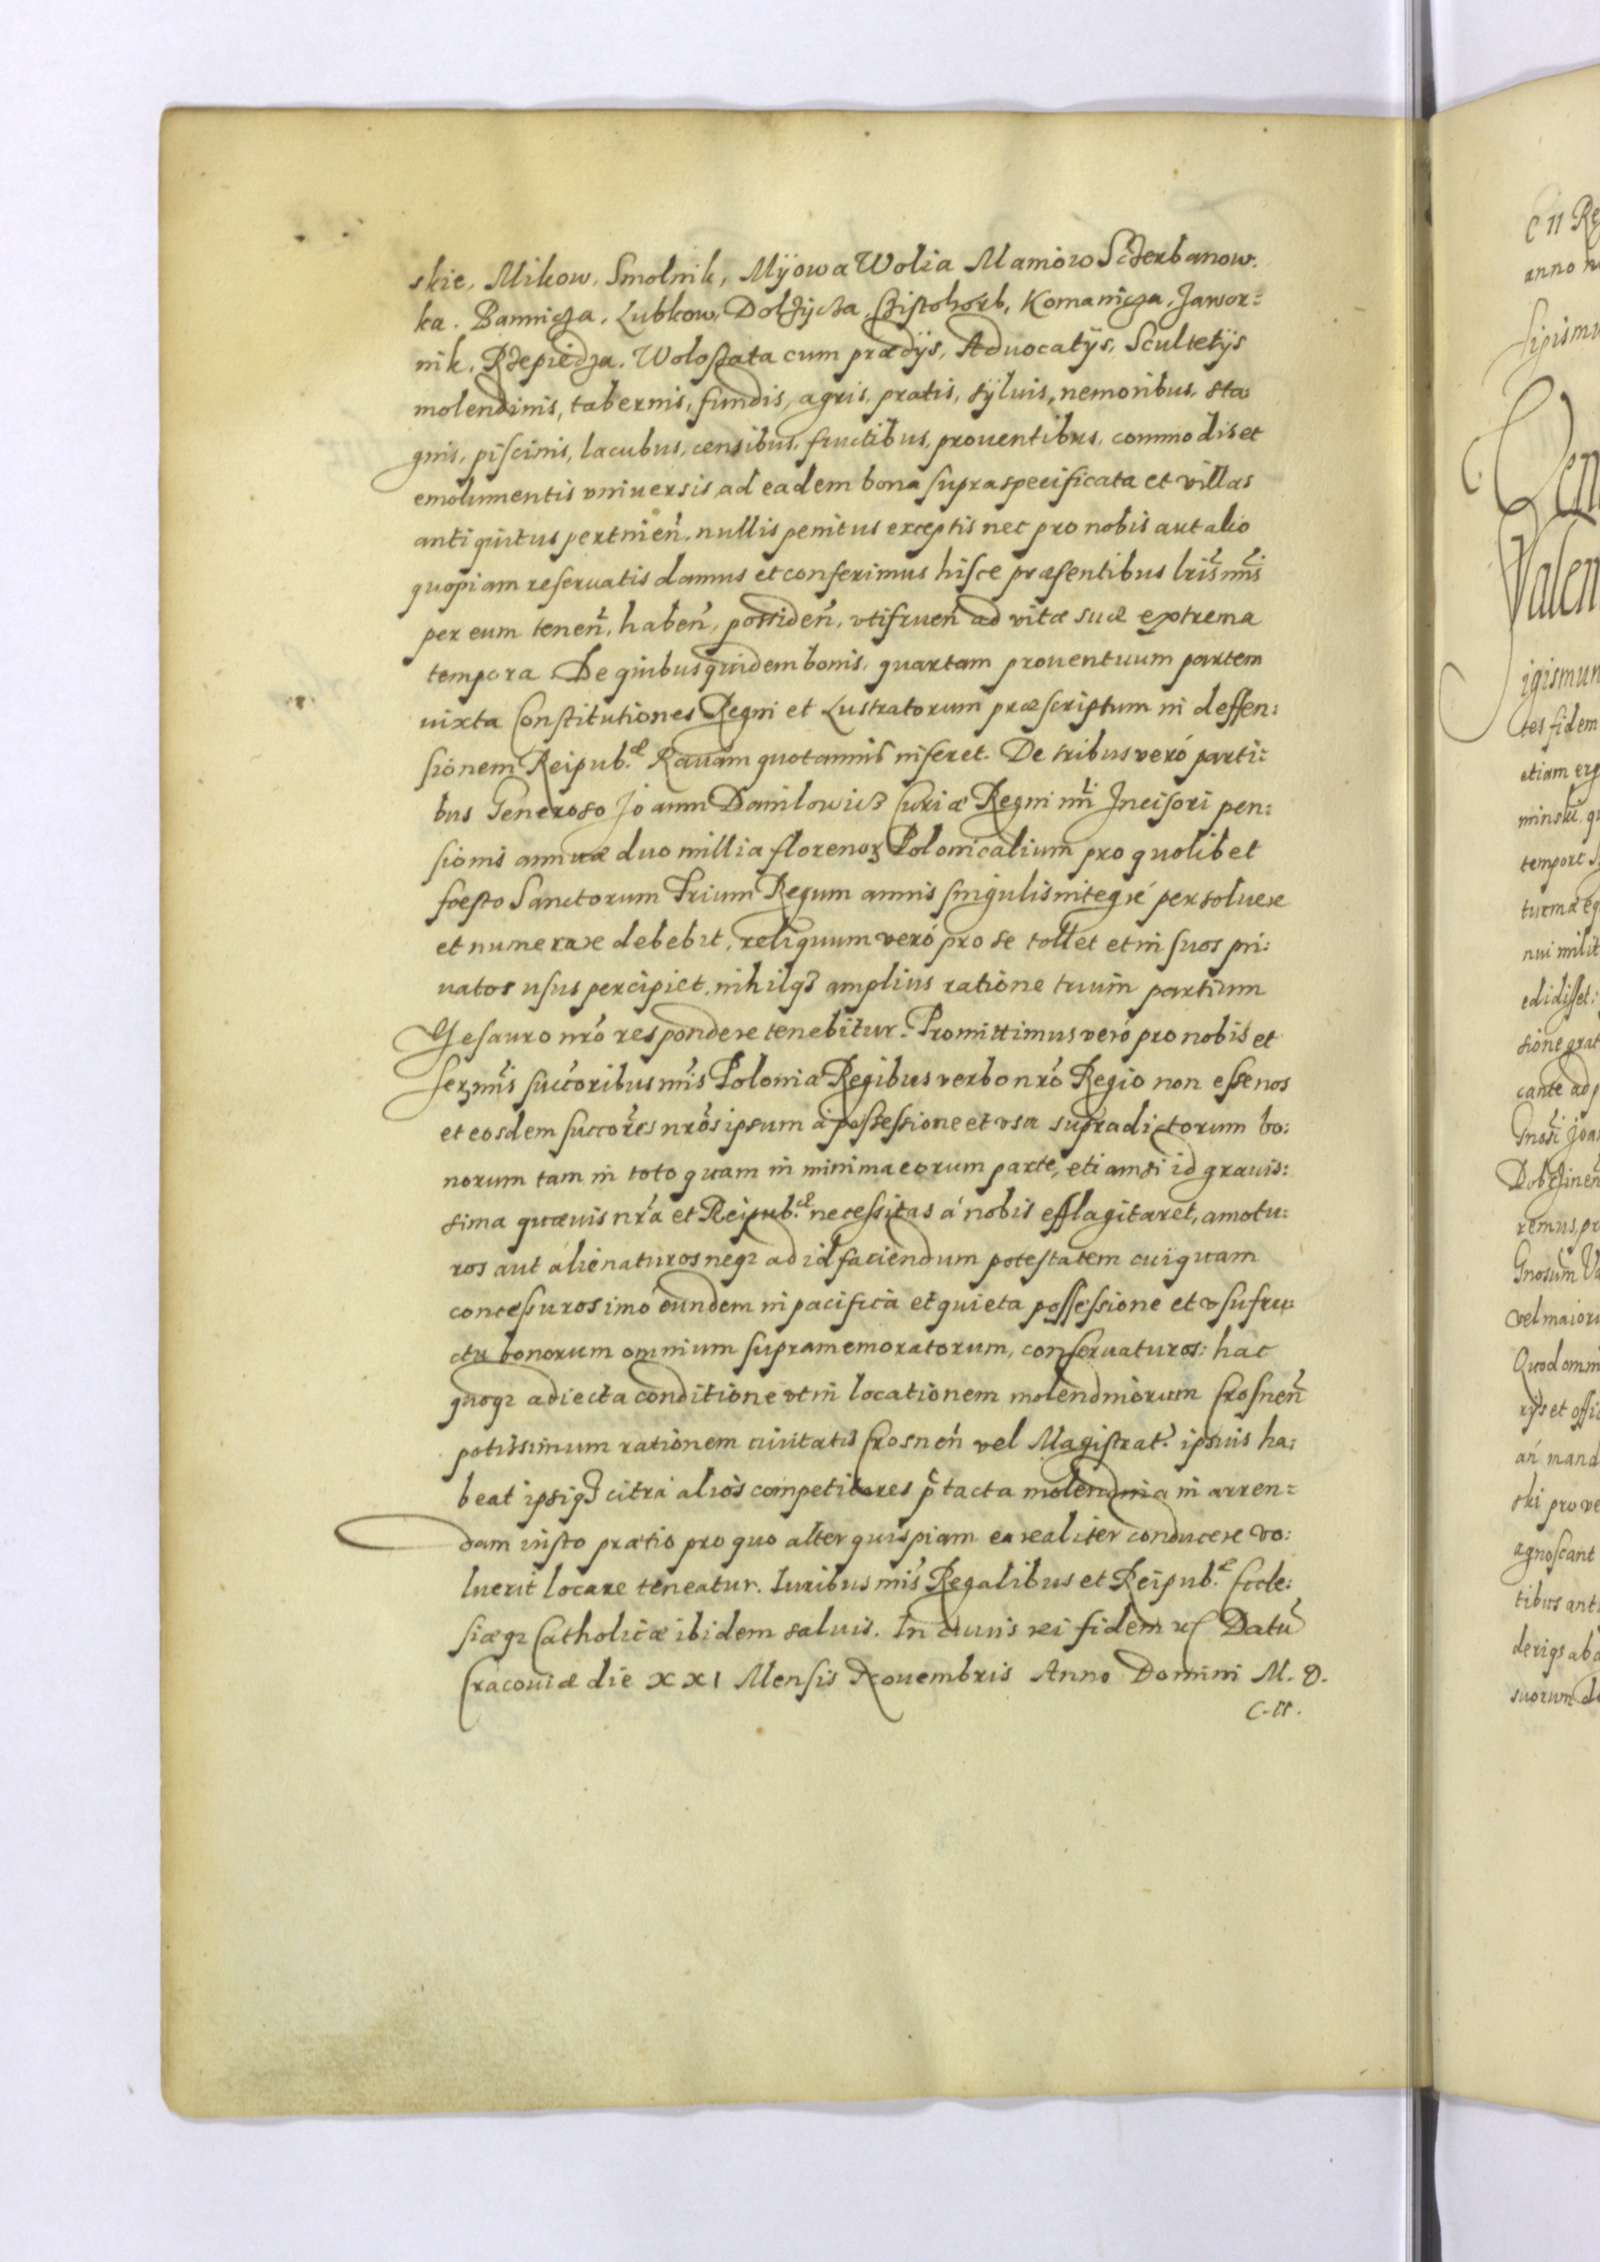 skie, Mikow, Smolnik, Mÿowa Wolia Maniow Sczerbanow.
ka. Bannicza, Lubkow, Dolzÿcza, Czistohorb, Komanicza, Jawor=
nik, Rzepiedza, Wolossata cum prædÿs, Aduocatÿs, Scultetÿs
molendinis, tabernis, fundis, agris, pratis, sÿluis, nemoribus, sta
gnis, piscinis, lacubus, censibus, fructibus, prouentibus, commodis et
emolumentis vniuersis, ad eadem bona supraspecificata et villas
antiquitus pertineñ, nullis penitus exceptis nec pro nobis aut alio
quopiam reseruatis damus et conferimus hisce præsentibus lris nris
per eum teneñ, habeñ, possideñ, vtifrueñ ad vitæ suæ extrema
tempora. De quibusquidem bonis, quartam prouentuum partem
iuxta Constitutiones Regni et Lustratorum præscriptum in deffen:
sionem Reipub.æ Rauam quotannis inferet. De tribus veró parti:
bus Generoso Joanni Danilowicz Curiæ Regni nri Incisori pen:
sionis annuæ duo millia florenoꝝ Polonicalium pro quolibet
foesto Sanctorum Trium Regum annis singulis integré persoluere
et numerare debebit, reliquum veró pro se tollet et in suos pri:
uatos usus percipiet, nihilqꝫ amplius ratione trium partium
Thesauro nro respondere tenebitur. Promittimus veró pro nobis et
serꝫmis succoribus nris Poloniæ Regibus verbo nro Regio non esse nos
et eosdem succores nros ipsum á possessione et vsu supradictorum bo:
norum tam in toto quam in minima eorum parte, etiamsi id grauis:
sima quæuis nra et Reipub.æ necessitas á nobis efflagitaret, amotu:
ros aut alienaturos neqꝫ ad id faciendum potestatem cuiquam
concessuros imó eundem in pacifica et quieta possessione et vsufru
ctu bonorum omnium supramemoratorum, conseruaturos: hac
quoqꝫ adiecta conditione vt in locationem molendinorum Crosneñ
potissimum rationem ciuitatis Crosneñ vel Magistrat⁹ ipsius ha:
beat ipsiqꝫ citra alios competitores ptacta molendina in arren=
dam iusto prætio pro quo alter quispiam ea realiter conducere vo:
luerit locare teneatur. Iuribus nris Regalibus et Reipub.æ Eccle:
siæqꝫ Catholicæ ibidem saluis. In cuius rei fidem etc Datũ
Cracouiæ die XXI Mensis Nouembris Anno Domini M. D.
C. II.